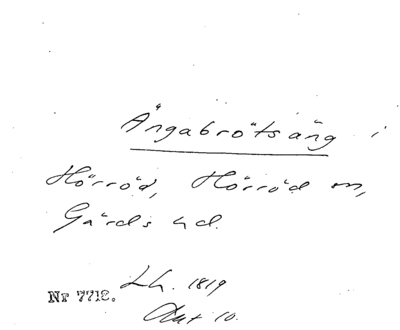 Ångabrötsäng i
Hörröd, Hörröd sn,
Gärds hd.
Lh. 1819
Nr 7712.
Akt 10.